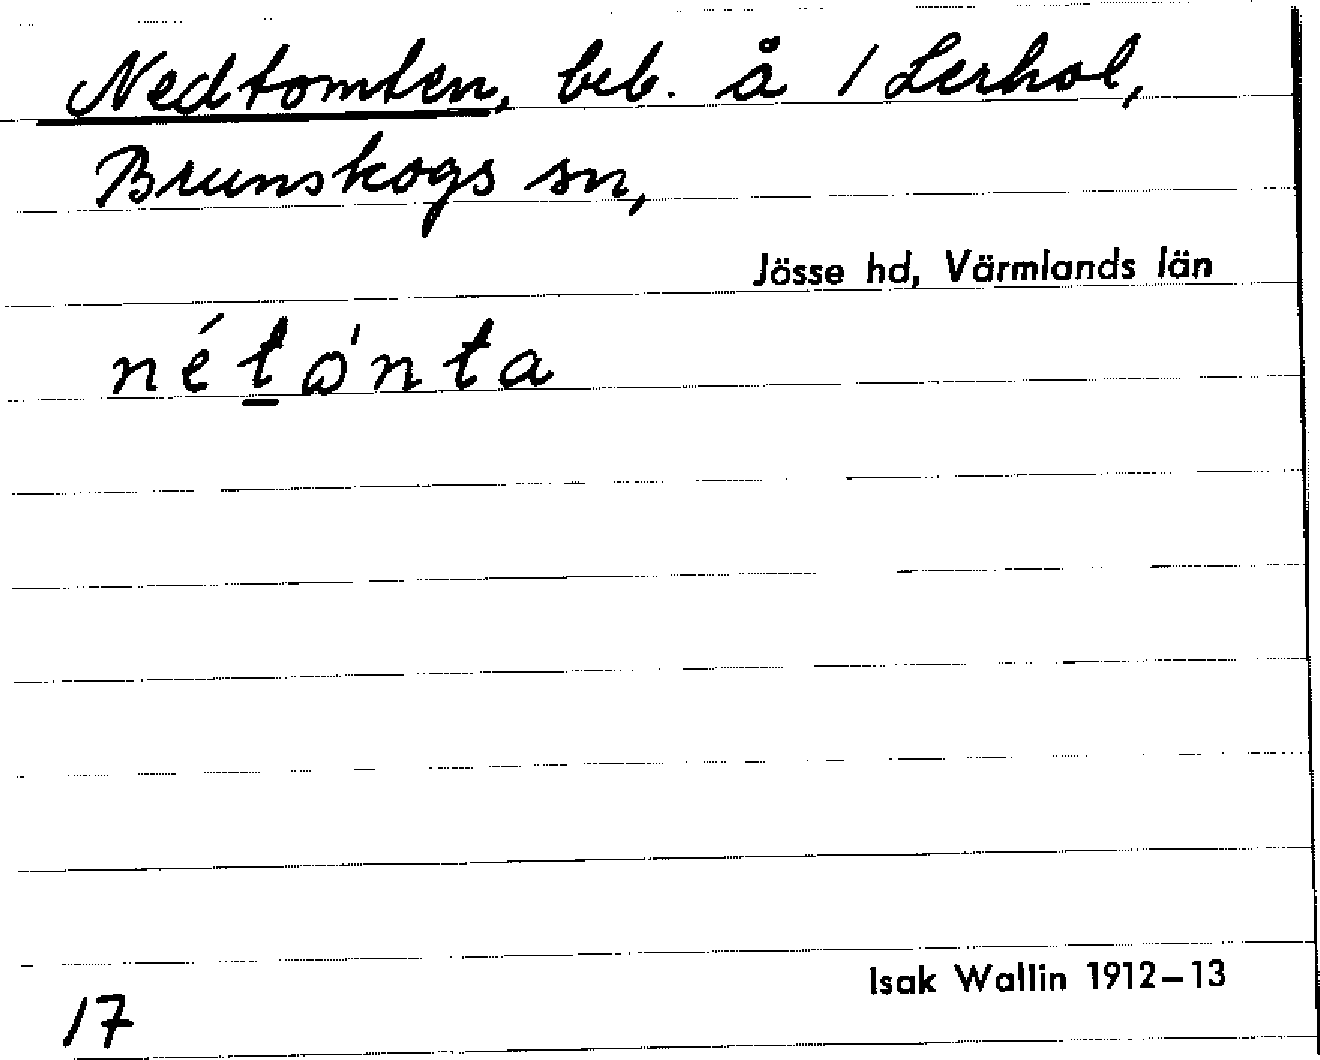 Nedtomten, beb. å 1 Lerhol,
Brunskogs sn,
Jösse hd, Värmlands län
nét̲ǿnta
Isak Wallin 1912–13
17